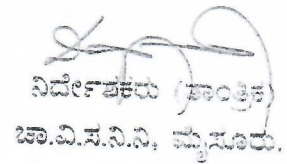 ನಿರ್ದೇಶಕರು (ತಾಂತ್ರಿಕ)
ಚಾ.ವಿ.ಸ.ನಿ.ನಿ, ಮೈಸೂರು.